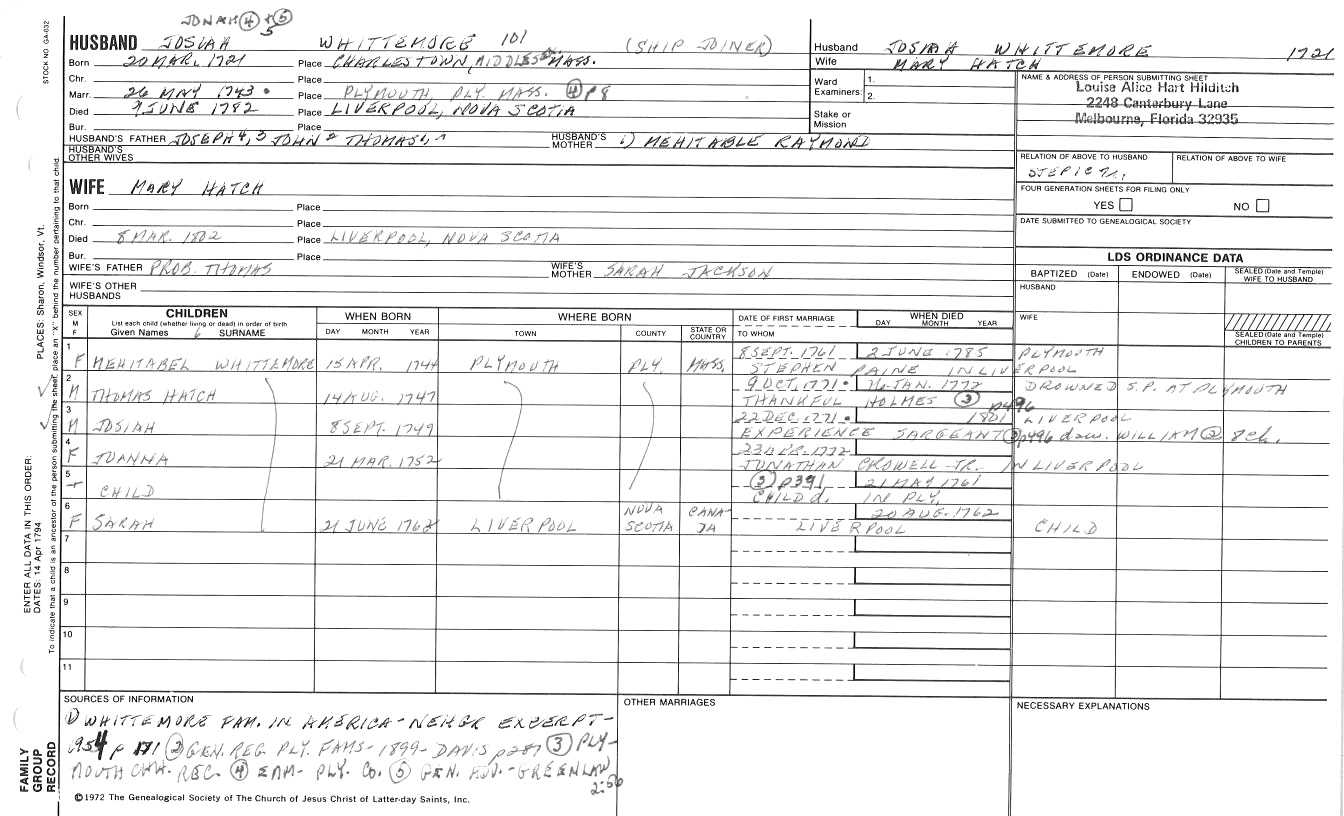 JONAH ④ & ⑤
5
HUSBAND JOSIAH WHITTEMORE 101 (SHIP JOINER)
Born 20 MAR. 1721 Place CHARLESTOWN, MIDDLESEX MASS.
Chr. Place
Marr. 26 MAY 1743 Place PLYMOUTH PLY. MASS. ④ P8
Died 9 JUNE 1782 Place LIVERPOOL, NOVA SCOTIA
Bur. Place
HUSBAND'S FATHER JOSEPH 4, 3 JOHN 2 THOMAS 1 HUSBAND'S MOTHER 1) MEHITABLE RAYMOND
HUSBAND'S OTHER WIVES
Husband JOSIAH WHITTEMORE 1721
Wife MARY HATCH
Ward Examiners: 1.
2.
Stake or Mission
NAME & ADDRESS OF PERSON SUBMITTING SHEET
Louise Alice Hart Hilditch
2248 Canterbury Lane
Melbourne, Florida 32935
RELATION OF ABOVE TO HUSBAND RELATION OF ABOVE TO WIFE
FOUR GENERATION SHEETS FOR FILING ONLY
YES NO
DATE SUBMITTED TO GENEALOGICAL SOCIETY
WIFE MARY HATCH
Born Place
Chr. Place
Died 8 MAR. 1802 Place LIVERPOOL, NOVA SCOTIA
Bur. Place
WIFE'S FATHER PROB. THOMAS WIFE'S MOTHER SARAH JACKSON
WIFE'S OTHER HUSBANDS
LDS ORDINANCE DATA
BAPTIZED (Date) ENDOWED (Date) SEALED (Date and Temple) WIFE TO HUSBAND
HUSBAND
WIFE
SEALED (Date and Temple) CHILDREN TO PARENTS
SEX M F
CHILDREN
List each child (whether living or dead) in order of birth
Given Names 6 SURNAME
WHEN BORN
DAY MONTH YEAR
WHERE BORN
TOWN COUNTY STATE OR COUNTRY
DATE OF FIRST MARRIAGE
TO WHOM
WHEN DIED
DAY MONTH YEAR
1 8 SEPT. 1761 2 JUNE 1785 PLYMOUTH
F MEHITABEL WHITTEMORE 15 APR. 1744 PLYMOUTH PLY. MASS. STEPHEN PAINE IN LIVERPOOL
2 9 OCT. 1771 16 JAN. 1772 DROWNED S.P. AT PLYMOUTH
M THOMAS HATCH 14 AUG. 1747 THANKFUL HOLMES ③ p496
3 22 DEC. 1771 1801 LIVERPOOL
M JOSIAH 8 SEPT. 1749 EXPERIENCE SARGEANT ③ p496 daw. WILLIAM ② 8 ch.
4 23 1772
F JOANNA 21 MAR. 1752 JONATHAN CROWELL JR. IN LIVERPOOL
5 ② p391 21 MAY 1761
CHILD CHILD d. IN PLY.
6 20 AUG. 1762
F SARAH 21 JUNE 1762 LIVERPOOL NOVA SCOTIA CANADA LIVERPOOL CHILD
7
8
9
10
11
SOURCES OF INFORMATION
1) WHITTEMORE FAM. IN AMERICA - NEHGR EXCERPT-
1954 p 171 ② GEN. REG. PLY. FAMS - 1899 - DAVIS p287 ③ PLY-
MOUTH CHH. REC. ④ EAM - PLY. CO. ⑤ GEN. ADV. - GREENLAW
2:56
OTHER MARRIAGES
NECESSARY EXPLANATIONS
©1972 The Genealogical Society of The Church of Jesus Christ of Latter-day Saints, Inc.
STOCK NO. GA-632
PLACES: Sharon, Windsor, Vt.
ENTER ALL DATA IN THIS ORDER:
DATES: 14 Apr 1794
To indicate that a child is an ancestor of the person submitting the sheet, place an "X" behind the number pertaining to that child.
FAMILY GROUP RECORD